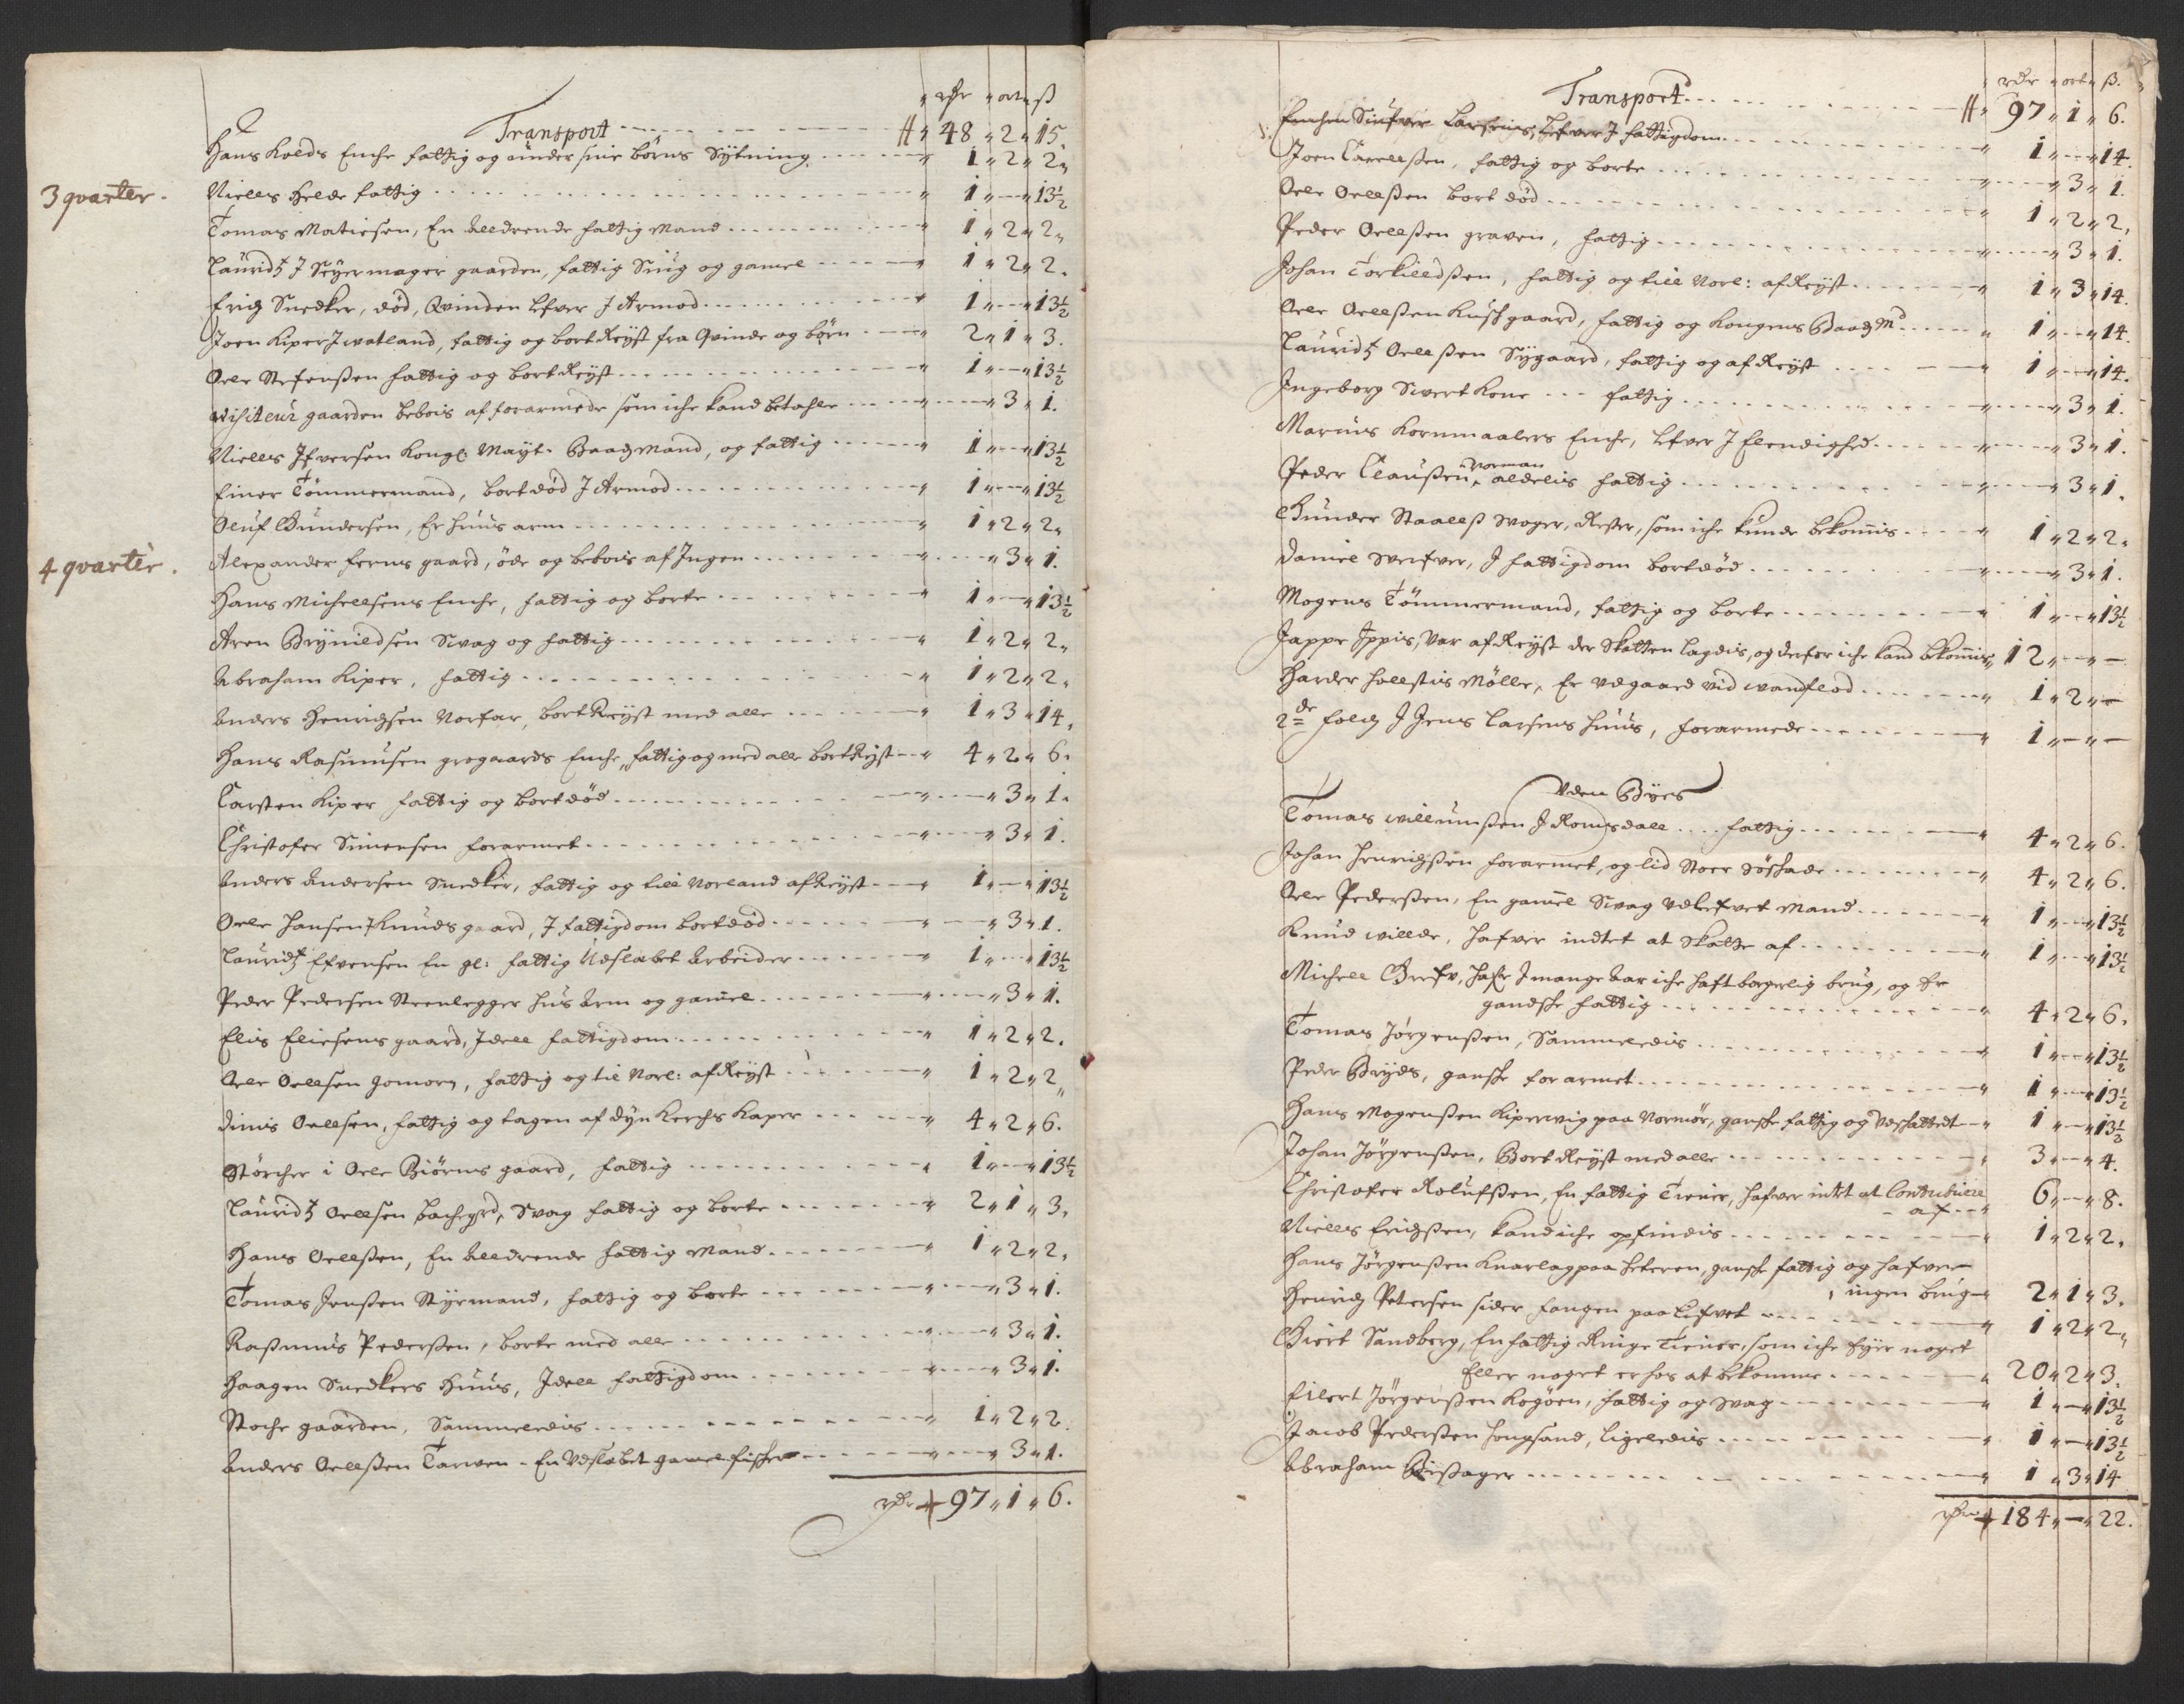 rdr ort ß
Transport 48 2 15
Hans Kolds Enche fattig og under sine børns Sÿtning 1 2 2
3 qvarter. Niells Helde fattig 1 - 13½
Tomas Matiesen, En alldrende fattig Mand 1 2 2
Lauridtz J Seÿermager gaarden, fattig Siug og gamel 1 2 2
Erich Snedker, død, Qvinden lefver J Armod 1 - 13½
Joen Kiper J watland, fattig og bort Reÿst fra Qvinde og børn 2 1 3
Oele Stefenßen fattig og bort Reÿst 1 - 13½
visiteur gaarden bebois af forarmede som iche kand betahle - 3 1
Niells Jfversen Kongl. Maÿt. Baadzmand, og fattig 1 - 13½
Einer Tømmermand, bortdød J Armod 1 - 13½
Oluf Gundersen, Er huus arm 1 2 2
4 qvarter. Alexander Ferns gaard, øde og bebois af Jngen - 3 1
Hans Michellsens Enche, fattig og borte 1 - 13½
Aren Brÿnildsen Svag og fattig 1 2 2
Abraham Kiper, fattig 1 2 2
Anders Henrichsen Norfar, bort Reÿst med alle 1 3 14
Hans Rasmusen grogaards Enche, fattig og med alle bort Reÿst 4 2 6
Carsten Kiper fattig og bortdød - 3 1
Christofer Simensen forarmet - 3 1
Anders Andersen Snedker, fattig og till Norland af Reÿst 1 - 13½
Oele Hansen Knuds gaard, J fattigdom bortdød - 3 1
Lauridtz Efvensen En gl: fattig Udslæbet Arbeider 1 - 13½
Peder Pedersen Steenlegger hus Arm og gamel - 3 1
Elis Eliesens gaard, Jdell fattigdom 1 2 2
Oele Oellsen gomorn, fattig og til Norl: af Reÿst 1 2 2
Dinis Oellsen, fattig og tagen af Dÿnkerchs Kaper 4 2 6
Størcher i Oele Biørns gaard, fattig 1 - 13½
Lauridtz Oellsen bachgrd, Svag fattig og borte 2 1 3
Hans Oellßen, En Alldrende fattig Mand 1 2 2
Tomas Jenßen Stÿrmand, fattig og borte - 3 1
Raßmus Pederßen, borte med alle - 3 1
Haagen Snedkers Huus, Jdell fattigdom - 3 1
Stoche gaarden, Sammeledis 1 2 2
Anders Oellßen Tarven - En Udslæbet gamel fischer - 3 1
rdr 97 1 6
rdr ort ß
Transport 97 1 6
Enchen Siufver Larsens, Lefver J fattigdom 1 - 14
Joen Carellßen, fattig og borte - 3 1
Oele Oellßen bort død 1 2 2
Peder Oellßen graven, fattig - 3 1
Johan Torkilldßen, fattig og till Norl: af Reÿst 1 3 14
Oele Oellßen Kusch gaard, fattig og Kongens Baadzmd 1 - 14
Lauridtz Oellßen Sÿgaard, fattig og af Reÿst 1 - 14
Ingeborg Sivert Kone fattig - 3 1
Marius Kornmaalers Enche, lefver J Elendighed - 3 1
Peder Claußen Norman, aldelis fattig - 3 1
Gunder Staallß svoger, Rester, som iche kunde bekomis 1 2 2
Daniel Sverfver, J fattigdom bortdød - 3 1
Mogens Tømmermand, fattig og borte 1 - 13½
Jappe Jppis, Var af Reÿst der Skatten lagdis, og derfor iche kand bekomis 12 - -
Harder Hollstis Mølle, Er Udgaard vid wandflod 1 2 -
2de folch J Jens Larsens huus, forarmede 1 - -
Uden Bÿes
Tomas Willumßen J Romsdall fattig 4 2 6
Johan Henrichßen forarmet, og lid Stoer Søschade 4 2 6
Oele Pederßen, En gamel Svag Udlefvet Mand 1 - 13½
Knud willde, hafver indtet at Skatte af 1 - 13½
Michell Grefv, hafr J mange Aar iche haft borgerlig brug, og Er
gandsche fattig 4 2 6
Tomas Jørgenßen, Sammeledis 1 - 13½
Peder Brÿds, gansche forarmet 1 - 13½
Hans Mogenßen Kiperwig paa Normør, gansche fattig og Udschattedt 1 - 13½
Johan Jørgenßen, Bort Reÿst med alle 3 - 4
Christofer Rolufßen, En fattig Tiener, hafver intet at Contribuere
af 6 - 8
Niells Erichßen, kand iche opfindis 1 2 2
Hans Jørgenßen Knarlag paa Heteren, gansche fattig og hafver
ingen brug 2 1 3
Henrich Petersen sider fangen paa Lifvet 1 2 2
Giert Sandberg, En fattig Ringe Tiener, som iche Eÿer noget
Eller noget er hos at bekomme 20 2 3
Eilert Jørgenßen Kogøen, fattig og svag 1 - 13½
Jacob Pederßen Hongsand, ligeledis 1 - 13½
Abraham Bißager 1 3 14
rdr 184 - 22